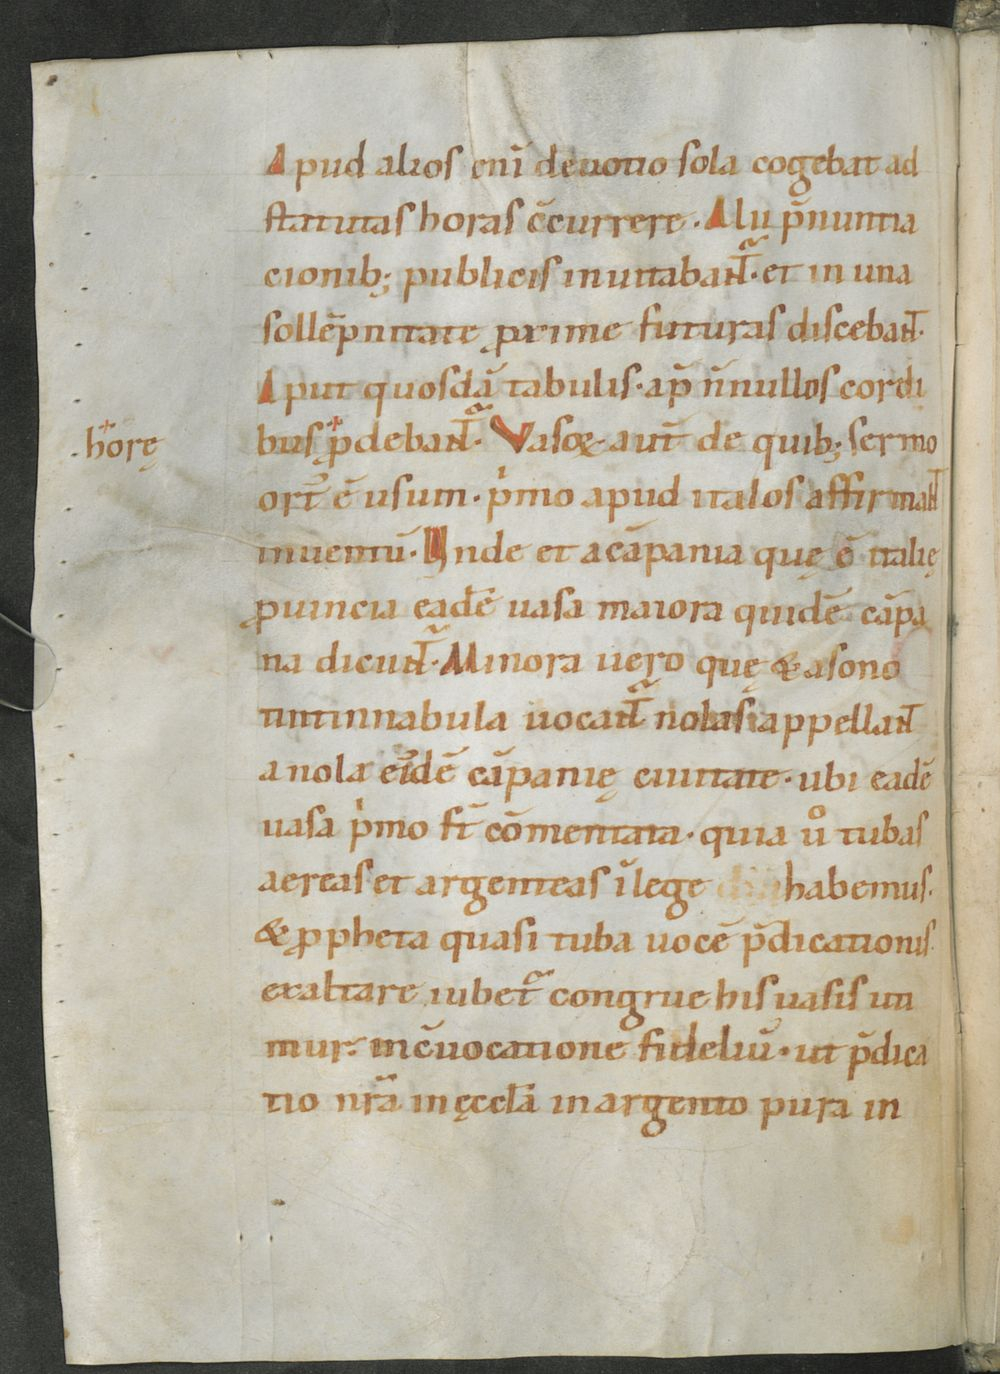 Apud alios enī deuotio sola cogebat ad
statutas horas c̄currere. Alii p̄nuntia
cionib; publicis inuitabant᷑. et in una
sollēpnitate ꝓxime futuras discebant.
Aput quosdā tabulis. ap̄ n̄nullos cordi
horę
bus p̄debant᷑. Vasoꝝ aut̄ de quib; sermo
ort᷑ ē usum. pͥmo apud italos affirmant
inuentū. Unde et a cāpania quę ē italię
ꝓuincia eadē uasa maiora quidē cāpa
na dicunt᷑. Minora uero quę & a sono
tintinnabula uocant᷑ nolas appellant
a nola eͥdē cāpanię ciuitate. ubi eadē
uasa pͥmo st̄ cōmentata. quia uͦ tubas
aereas et argenteas ī lege habemus.
& ꝓpheta quasi tuba uocē p̄dicationis
exaltare iubet᷑ congrue his uasis uti
mur. in c̄uocatione fideliū. ut p̄dica
tio nr̄a in ęccl̄a in argento pura in